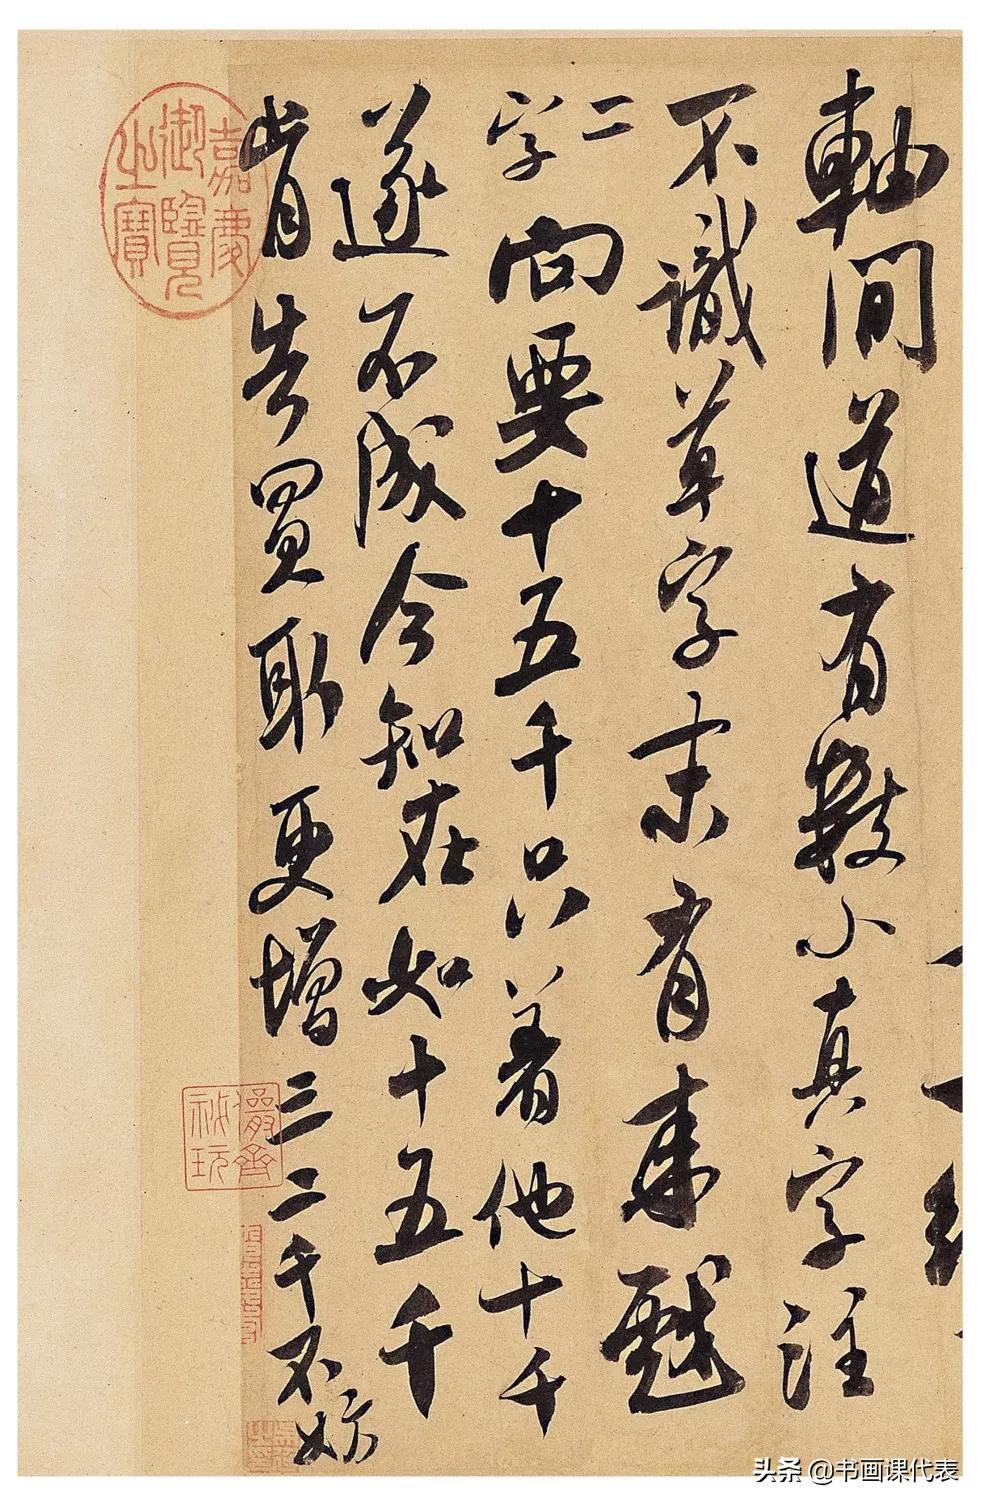 軸間道有數小真字注
不識草字末有來戲
二字向要十五千只着他十千
遂不成今知在如十五千
肯告買取更增三二千不妨
嘉慶御覽之寶
儼齋祕玩
头条 @书画课代表